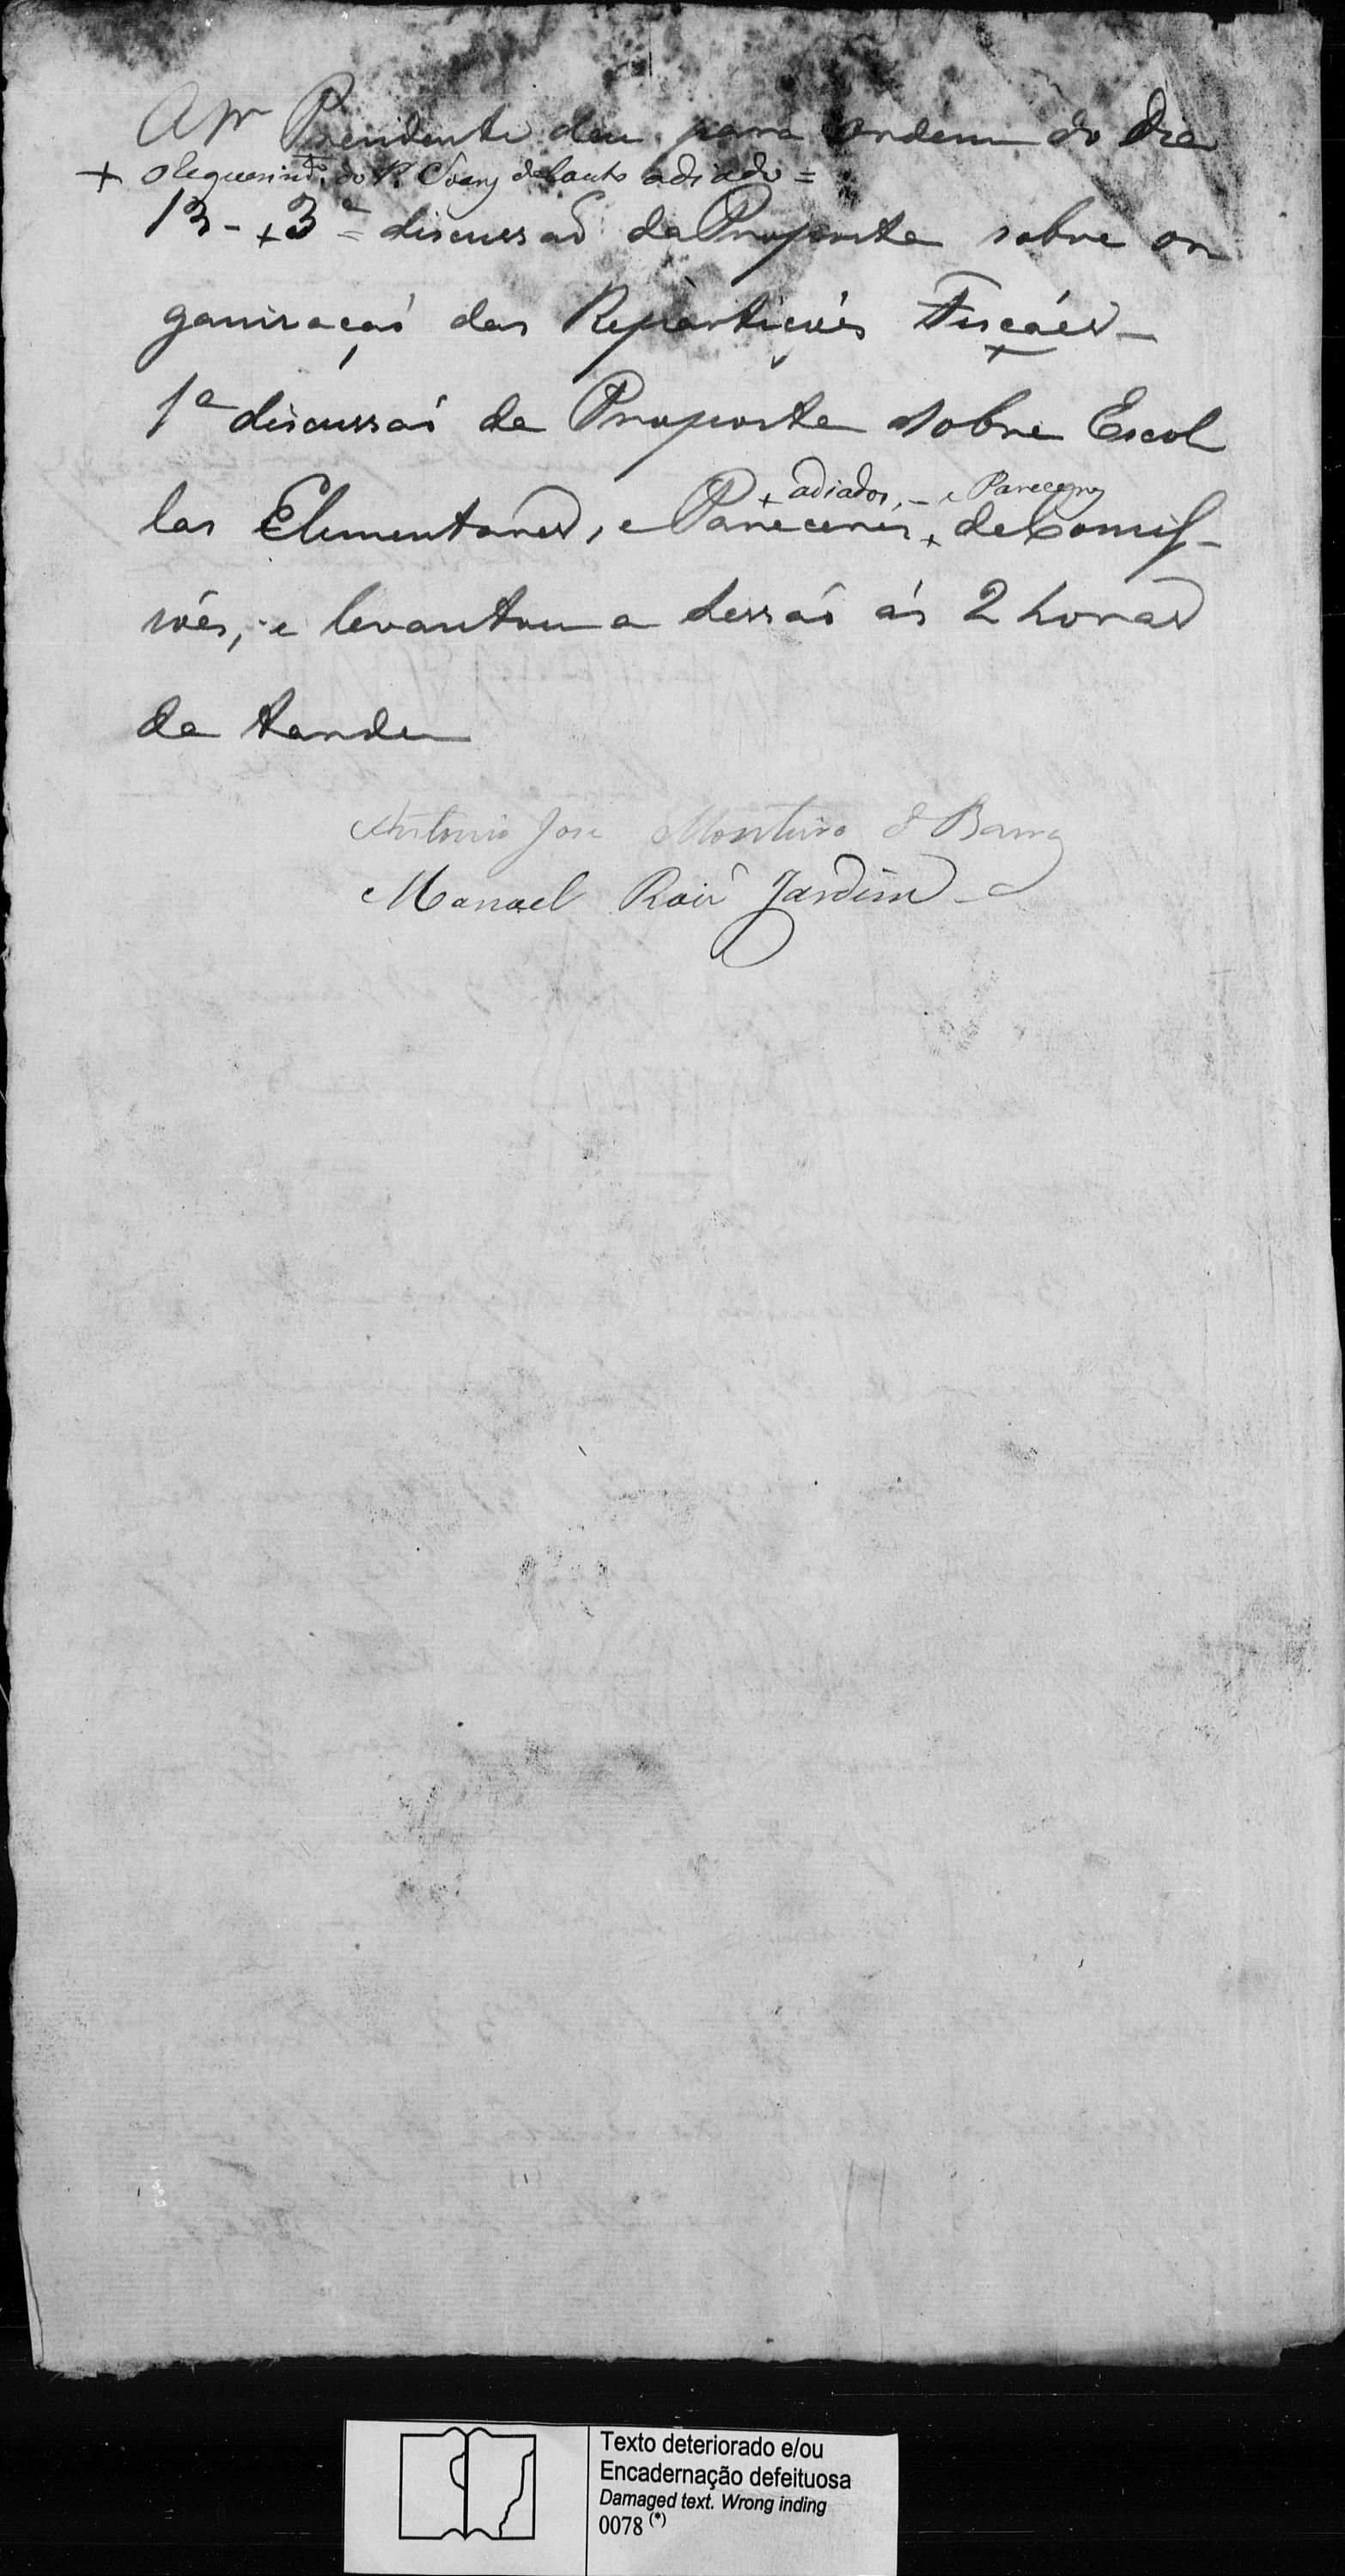 Presidente deu para Ordem do Dia
+ o Requerim.to do P. debauto adiado =
13 - + 3ª discussaõ da Proposta sobre or
ganisaçaõ das Repartiçoẽs Fiscáes -
1ª discussaõ da Proposta sobre Escol
+ adiados, - e Pareceres
las Elementares, e Pareceres + de Comiss-
soẽs, e levantou a Sessaõ ás 2 horas
da tarde
Antonio José Monteiro de Barros
Manoel Roiz Jardim
Texto deteriorado e/ou
Encadernação defeituosa
Damaged text. Wrong inding
0078 (*)